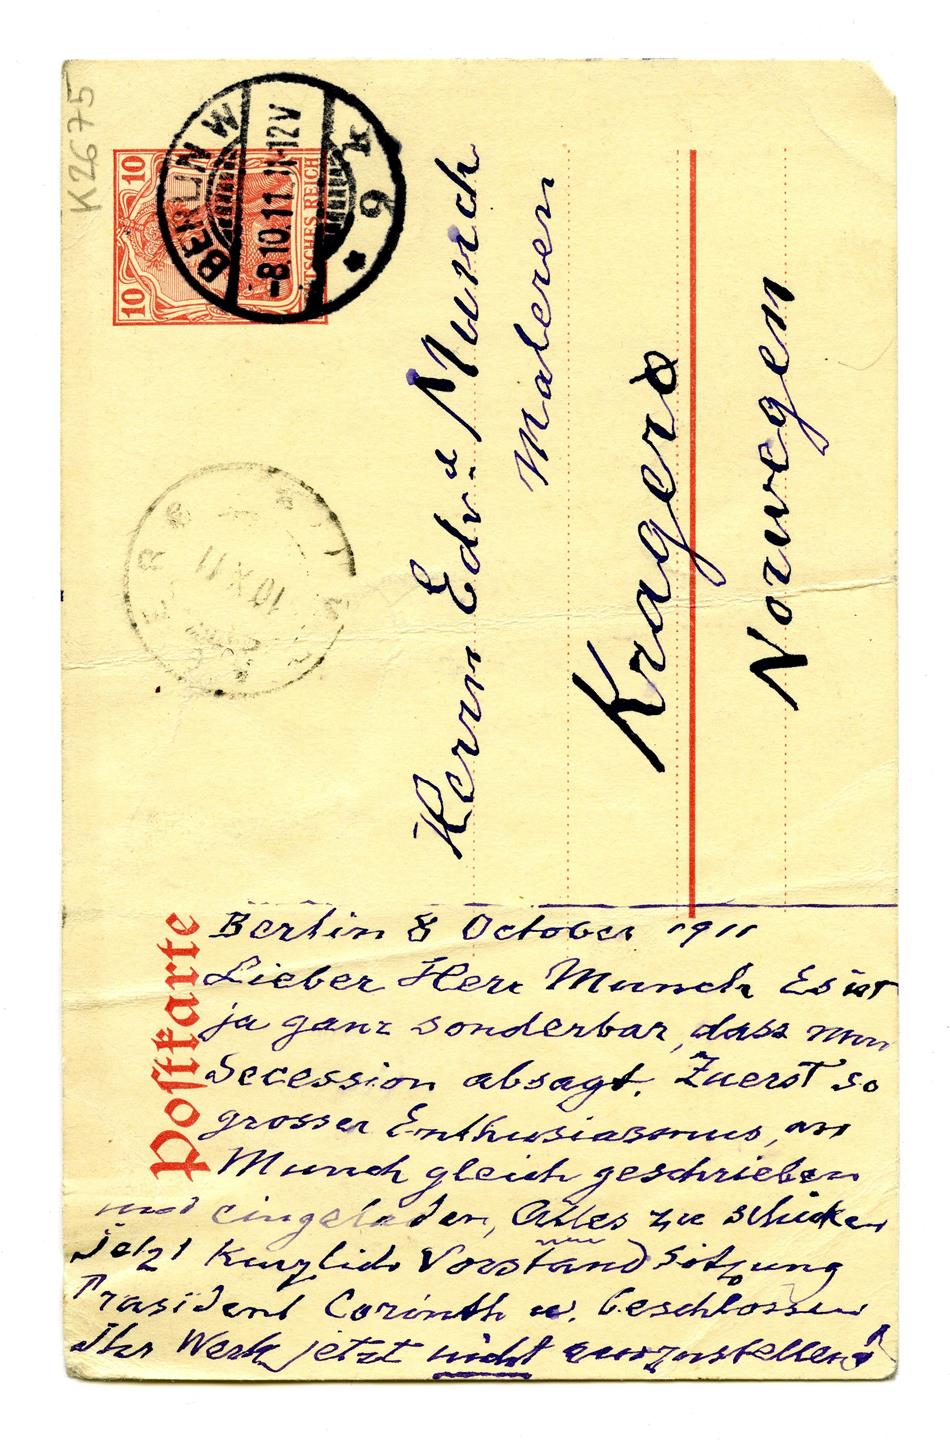 K2675
10
10
DEUTSCHES REICH
BERLIN W
* 9 k
-8.10.11.11-12V
10 X 11
Herrn Edv. Munch
Maleren
Kragerö
Norwegen
Postkarte
Berlin 8 October 1911
Lieber Herr Munch Es ist
ja ganz sonderbar, dass nun
Secession absagt. Zuerst so
grosser Enthusiasmus, an
Munch gleich geschrieben
und eingeladen, Alles zu schicken
Jetzt kurzlich Vorstand Sitzung
Präsident Corinth u. beschlossen
Ihr Werk jetzt nicht auszustellen!